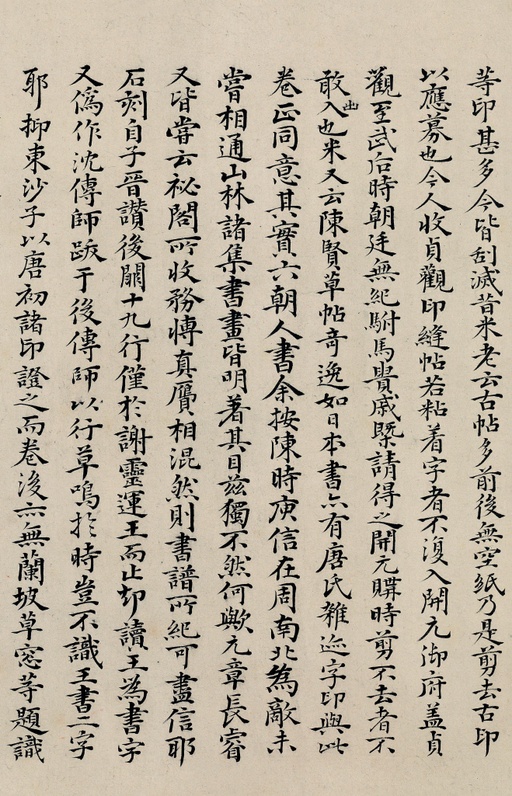 等印甚多今皆刮滅昔米老云古帖多前後無空紙乃是剪去古印
以應募也今人收貞觀印縫帖若粘着字者不復入開元御府蓋貞
觀至武后時朝廷無紀駙馬貴戚槩請得之開元購時剪不去者不
敢入出也米又云陳賢草帖奇逸如日本書亦有唐氏雜迹字印與此
卷正同意其實六朝人書余按陳時庾信在周南北為敵未
嘗相通山林諸集書畫皆明著其目茲獨不然何歟元章長睿
又皆嘗云祕閣所收務博真贗相混然則書譜所紀可盡信耶
石刻自子晉讚後闕十九行僅於謝靈運王而止却讀王為書字
又偽作沈傳師跋于後傳師以行草鳴於時豈不識王書二字
耶抑東沙子以唐初諸印證之而卷後亦無蘭坡草窓等題識